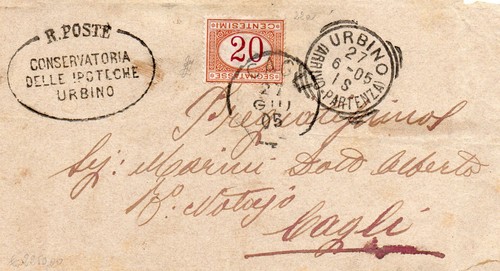 R. POSTE
CONSERVATORIA
DELLE IPOTECHE
URBINO
SEGNATASSE
20
CENTESIMI
CAGLI
27
GIU
05
URBINO
27
6-05
1S
(ARRIVO-PARTENZA)
Pregiatissimo
Sig: Marini Dott Alberto
R.º Notajo
Cagli